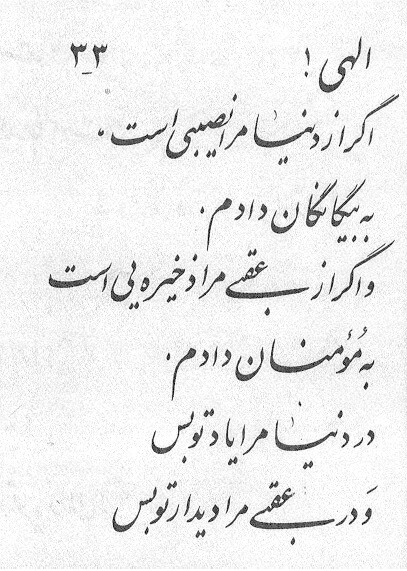 الهی ! ۳-۳
اگر از دنیا مرا نصیبی است ،
به بیگانگان دادم .
و اگر از عقبی مرا ذخیره یی است
به مُؤمنان دادم .
در دنیا مرا یاد تو بس
وَ در عقبی مرا دیدار تو بس